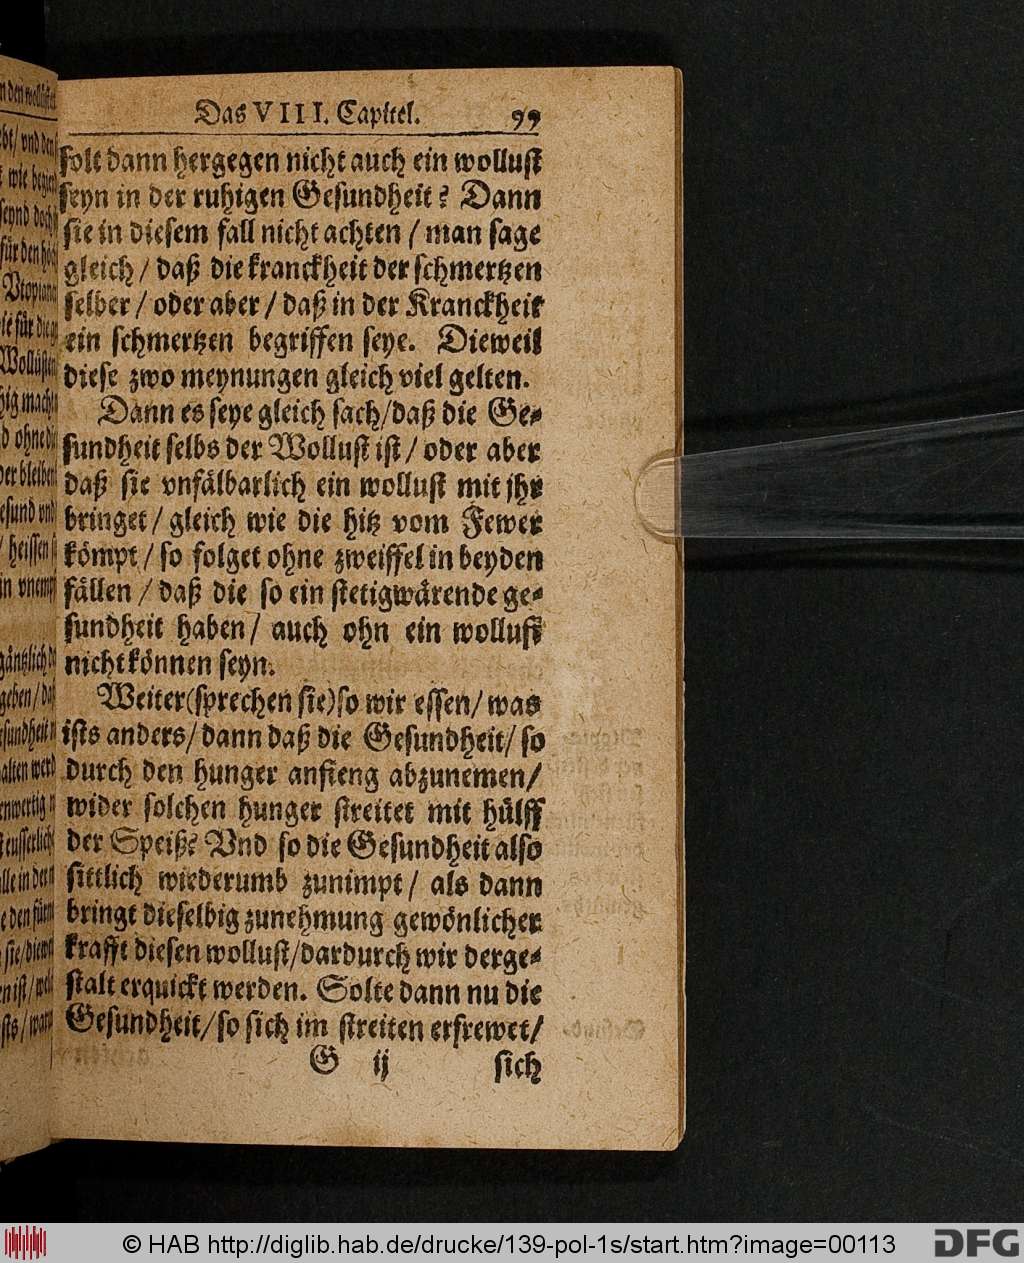 Das VIII. Capitel. 99
solt dann hergegen nicht auch ein wollust
seyn in der ruhigen Gesundheit? Dann
sie in diesem fall nicht achten / man sage
gleich / daß die kranckheit der schmertzen
selber / oder aber / daß in der Kranckheit
ein schmertzen begriffen seye. Dieweil
diese zwo meynungen gleich viel gelten.
Dann es seye gleich sach/daß die Ge-
sundheit selbs der Wollust ist / oder aber
daß sie vnfälbarlich ein wollust mit jhr
bringet / gleich wie die hitz vom Fewer
kömpt / so folget ohne zweiffel in beyden
fällen / daß die so ein stetigwärende ge-
sundheit haben / auch ohn ein wollust
nicht können seyn.
Weiter(sprechen sie)so wir essen / was
ists anders / dann daß die Gesundheit / so
durch den hunger anfieng abzunemen /
wider solchen hunger streitet mit hülff
der Speiß? Vnd so die Gesundheit also
sittlich wiederumb zunimpt / als dann
bringt dieselbig zunehmung gewönlicher
krafft diesen wollust/dardurch wir derge-
stalt erquickt werden. Solte dann nu die
Gesundheit / so sich im streiten erfrewet /
G ij sich
© HAB http://diglib.hab.de/drucke/139-pol-1s/start.htm?image=00113
DFG